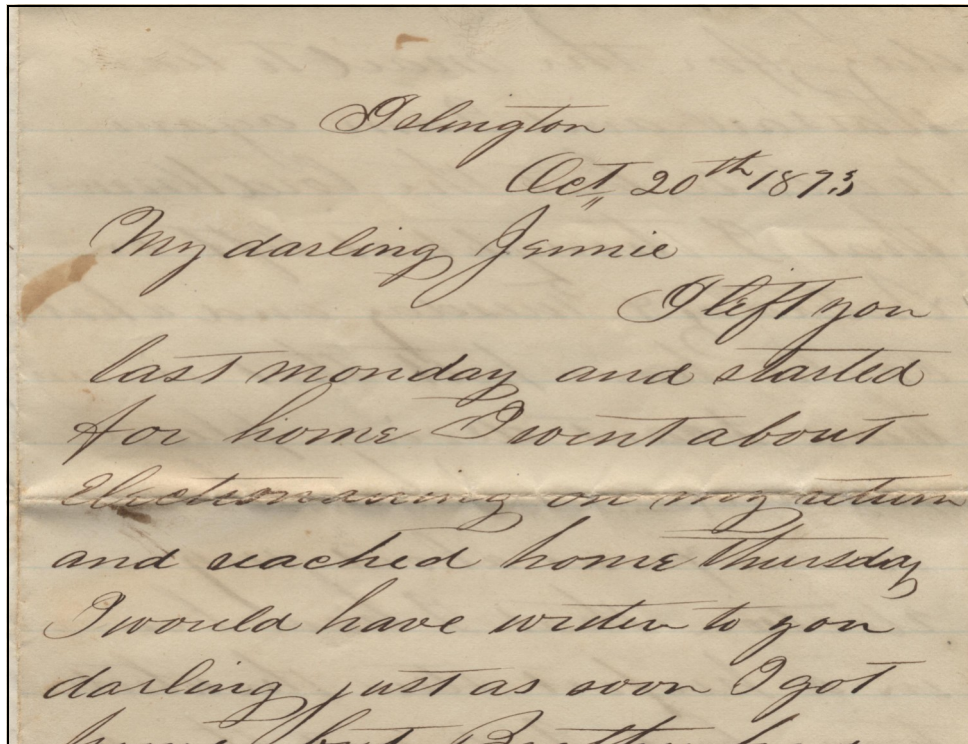 Islington
Oct, 20th 1873
My darling Jennie
I left you
last monday and started
for home I went about
Electioneering on my return
and reached home Thursday
I would have writen to you
darling just as soon I got
home but Brother